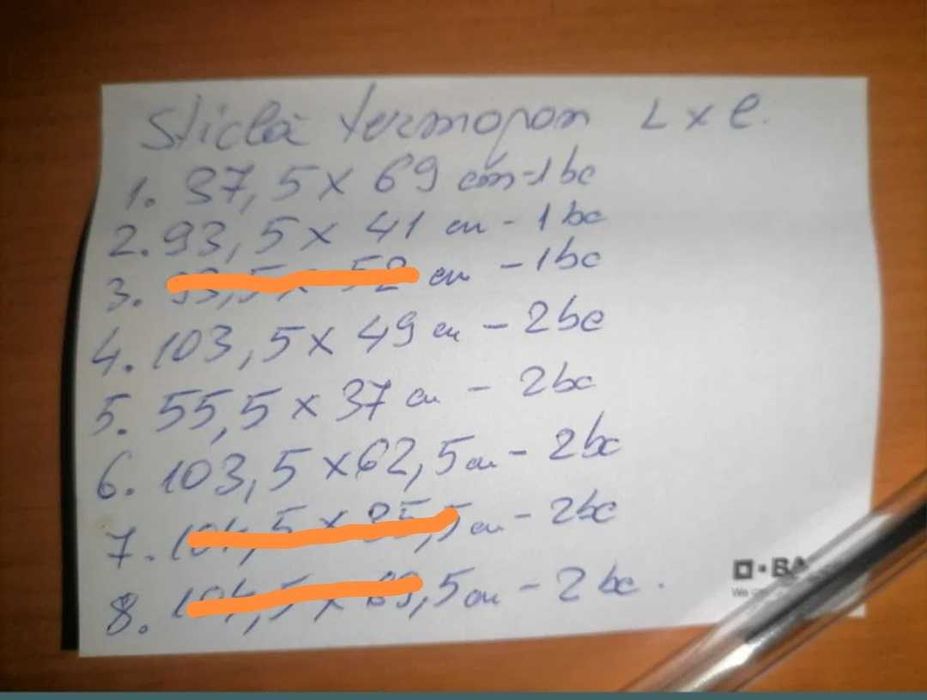 Sticlă termopan L x l.
1. 37,5 x 69 cm - 1 bc
2. 93,5 x 41 cm - 1 bc
3. cm - 1 bc
4. 103,5 x 49 cm - 2 bc
5. 55,5 x 37 cm - 2 bc
6. 103,5 x 62,5 cm - 2 bc
7. cm - 2 bc
8. cm - 2 bc.